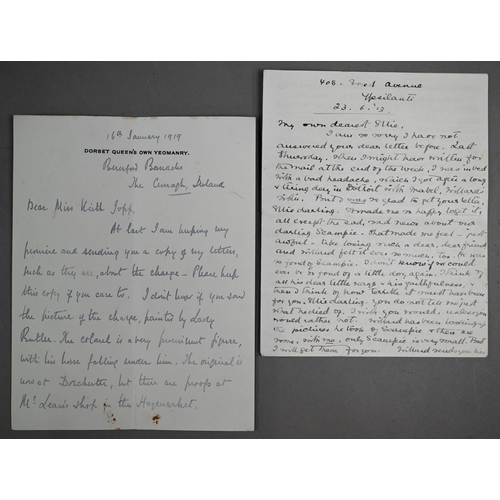 16th January 1919
DORSET QUEEN'S OWN YEOMANRY.
Beresford Barracks
The Curragh, Ireland
Dear Miss Keith Jopp.
At last I am keeping my
promise and sending you a copy of my letters,
such as they are, about the charge - Please keep
this copy if you care to. I don't know if you saw
the picture of the charge, painted by Lady
Butler. The colonel is a very prominent figure,
with his horse falling under him. The original is
now at Dorchester, but there are proofs at
Mr Lean's shop in the Haymarket.
408. Avenue
Ypsilanti
23. 6. '13.
My own dearest Elsie.
I am so sorry I have not
answered your dear letter before. Last
Thursday, when I might have written for
the mail at the end of the week, I was in bed
with a bad headache, which I got after a long
& tiring day in Detroit with Mabel, Willard
But I was so glad to get your letter,
Elsie darling. It made me so happy to get it,
all except the sad, sad news about our
darling Scampie. That made me feel - just
awful - like losing such a dear, dear friend
and Willard felt it ever so much, too, for he was
so fond of Scampie. I don't know if we could
ever be so fond of a little dog again. I think of
all his dear little ways & his faithfulness, &
then I think of how terrible it must have been
for you. Elsie darling, you do not tell me just
what he died of. I wish you would, unless you
would rather not. Willard has been looking up
the pictures he took of Scampie & there are
some, with me, only Scampie is very small. But
I will get them for you. Willard sends you his